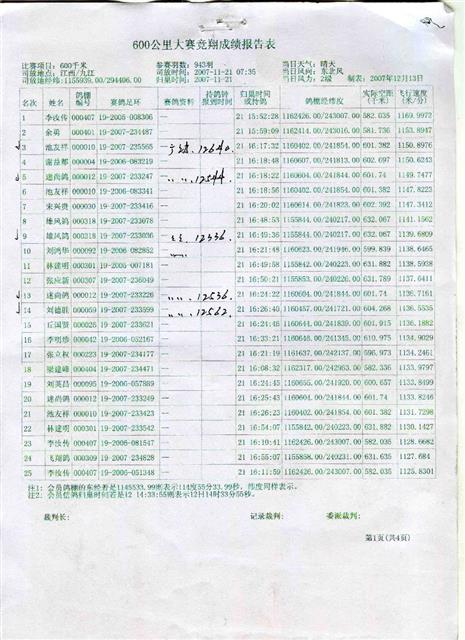 600公里大赛竞翔成绩报告表
比赛项目：600千米 参赛羽数：943羽 当日天气：晴天
司放地点：江西/九江 司放时间：2007-11-21 07:35 当日风向：东北风
司放经纬：1155939.00/294406.00 归巢时间：2007-11-21 当日风力：2级 制表：2007年12月13日
名次 姓名 鸽棚编号 赛鸽足环 赛鸽资料 持鸽钟报到时间 归巢时间或持鸽 鸽棚经纬度 实际空距(千米) 飞行速度(米/分)
1 李汝传 000407 19-2006-008306 — 21 15:52:28 1162426.00/243007.00 582.035 1169.9972
2 余勇 000401 19-2007-234487 — 21 16:02:09 581.736 1153.8947
3 池友祥 000010 19-2007-235565 21 16:17:32 1160402.00/241854.00 601.382 1150.8976
4 谢益都 000004 19-2006-083219 — 21 16:18:48 1160607.00/241813.00 602.097 1150.6243
5 迷尚鸽 000012 19-2007-233247 21 16:18:22 1160604.00/241844.00 601.74 1149.7477
6 池友祥 000010 19-2006-083341 — 21 16:18:56 1160402.00/241854.00 601.382 1147.8223
7 宋兴贵 000030 19-2007-233416 — 21 16:20:02 1160614.00/241823.00 602.392 1147.3412
8 雄风鸽 000318 19-2007-233078 — 21 16:48:53 1155844.00/240217.00 632.067 1141.1562
9 雄风鸽 000318 19-2007-233036 21 16:49:36 1155844.00/240217.00 632.067 1139.6809
10 刘鸿华 000092 19-2006-082852 21 16:21:48 1160623.00/241946.00 599.839 1138.6465
11 林建明 000301 19-2006-007181 — 21 16:49:58 1155842.00/240223.00 631.882 1138.5938
12 张应新 000307 19-2007-236049 — 21 16:50:21 1155853.00/240226.00 631.789 1137.6411
13 迷尚鸽 000012 19-2007-233226 12536. 21 16:24:22 1160604.00/241844.00 601.74 1136.7161
14 刘德胜 000059 19-2007-233599 12562. 21 16:26:40 1160457.00/241721.00 604.268 1136.5535
15 丘国贤 000025 19-2007-233621 — 21 16:24:46 1160644.00/241839.00 601.915 1136.1882
16 李明珍 000042 19-2006-052167 — 21 16:33:21 1160648.00/241345.00 610.975 1134.9029
17 张立权 000223 19-2007-234177 — 21 16:21:19 1161637.00/242137.00 596.973 1134.2461
18 梁建峰 000404 19-2007-234471 — 21 16:08:32 1162317.00/242953.00 582.336 1133.9797
19 刘英昌 000095 19-2006-057889 — 21 16:24:45 1160655.00/241920.00 600.657 1133.8499
20 迷尚鸽 000012 19-2007-233249 — 21 16:25:43 1160604.00/241844.00 601.74 1133.8246
21 池友祥 000010 19-2007-233423 — 21 16:26:23 1160402.00/241854.00 601.382 1131.7298
22 林建明 000301 19-2007-233542 — 21 16:54:07 1155842.00/240223.00 631.882 1130.1427
23 李汝传 000407 19-2006-081547 — 21 16:10:41 1162426.00/243007.00 582.035 1128.6682
24 飞翔鸽 000309 19-2007-234828 — 21 16:55:07 1155858.00/240231.00 631.635 1127.684
25 李汝传 000407 19-2006-051348 — 21 16:11:59 1162426.00/243007.00 582.035 1125.8301
注1：会员鸽棚的东经若是1145533.99则表示114度55分33.99秒，纬度同样表示。
注2：会员信鸽归巢时间若是12 14:33:55则表示12日14时33分55秒。
裁判长： 记录裁判： 委派裁判：
第1页(共4页)